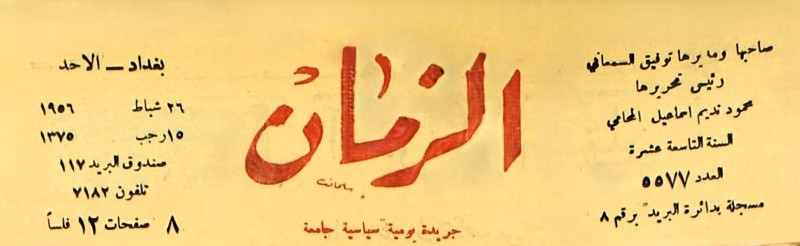 صاحبها ومديرها توفيق السمعاني
رئيس تحريرها
محمود نديم اسماعيل المحامي
السنة التاسعة عشرة
العدد ٥٥٧٧
مسجلة بدائرة البريد برقم ٨
الزمان
سلمان
جريدة يومية سياسية جامعة
بغداد – الاحد
٢٦ شباط ١٩٥٦
١٥ رجب ١٣٧٥
صندوق البريد ١١٧
تلفون ٧١٨٢
٨ صفحات ١٢ فلساً